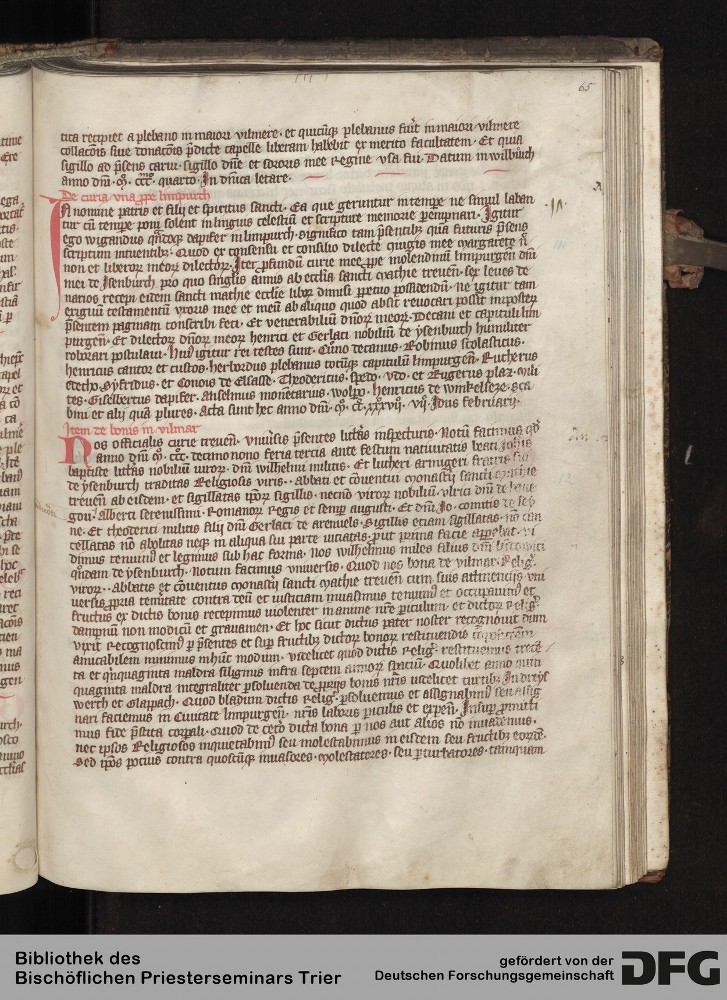 65
tita recipiet a plebano in maiori vilmere · et quicūq; plebanus fuīt in maiori vilmere
collacōnis siue donacōnis p̄dicte capelle liberam habebit ex merito facultatem · Et quia
sigillo ad p̄sens carui · sigillo dn̄e et sororis mee Regine vsa fui · Datum in wilbūrch
anno dn̄i · M̊ · ccc̊ · quarto · In dn̄ica letare ·
De curia vna ꝓpe limpurch
In nomine patris et filij et spiritus sancti · Ea que geruntur in tempe ne simul laban
tur cū tempe poni solent in linguis celestiū et scripture memorie p̄hēnnari · Igitur
ego wigandus q̄ndoq; dapifer in limpurch · significo tam p̄sentib; quā futuris p̄sens
scriptum intuentib; · Quod ex consensu et consilio dilecte ɔiugis mee margarete n̄
non et liberor meor dilector · Iter ꝓfundū curie mee ꝓpe molendinū limpurgen dn̄i
mei de Isenburch pro quo singlis annis ab eccl̄ia sancti mathie treueñ · sex leues de
narios recepi eidem sancti mathie eccl̄ie libere dimisi ꝑpetuo possidendū · ne igitur tam
exigiū testamentū vxoris mee et meū ab aliquo quod absit reuocari possit in posterū
p̄sentem paginam conscribi feci · Et venerabiliū dn̄or meor · Decani et capituli lim
purgeñ · Et dilector dn̄or meor henrici et Gerlaci nobiliū de ysenburch humiliter
roborari postulaui · Huiꝰ igitur rei testes sunt · Cūno decanus · Robinus scolasticus ·
henricus cantor et custos · herbordus plebanus totūq; capitulū limpurgeñ · Rucherus
etecho · Syfridus · et Conois de Elsasse · Theodericus · specto · vdo · et Rugerus plaz · mili
tes · Giselbertus dapifer · Anselmus monetarius · wolpo · henricus de winkelseze · sca
bini et alij quā plures · Acta sunt hec anno dn̄i · M̊ · cc̊ · xxxvij · vij · Idus februarij ·
Item de bonis in vilmar
Nos officialis curie treueñ · vniūsis p̄sentes litt̄as inspecturis · Notū facimus qd̓
anno dn̄i M̊ · ccc̊ · decimonono feria tercia ante festum natiuitatis beati Joh̄is
baptiste litt̄as nobiliū viror · dn̄i wilhelmi militis · Et lutheri armigeri fratris sui
de ysenburch traditas Religiosis viris · · abbati et cōuentui monast̄ij sancti
treueñ ab eisdem · et sigillatas ip̄or sigillis · necnō viror nobiliū · vlrici dn̄i de
gou · Alberti serenissimi · Romanor Regis et semp augusti · Et dn̄i Jo · comitis de
ne · Et theoderici militis filij dn̄i Gerlaci de aremuels · Sigillis etiam sigillatas · nō can
cellatas nō abolitas neq; in aliqua sui parte viciatas · put prima facie appebat · vi
dimus tenuimꝰ et legimus sub hac forma · Nos wilhelmus miles filius dn̄i
q̄ndam de ysenburch · notum facimus vniuersis · Quod nos bona de vilmar · Relig̃ ·
viror · · Abbatis et cōuentus monast̄ij sancti mathie treueñ cum suis attinencijs vni
uersis ꝓpria temitate contra deū et iusticiam inuasimus tenuimꝰ et occupauimꝰ et
fructus ex dictis bonis recepimus violenter in anime nr̄e ꝑiculum · et dictor Relig̃ ·
dampnū non modicū et grauamen · Et hoc sicut dictus pater noster recognouit dum
vixit Recognoscimꝰ ꝑ p̄sentes et sup fructib; dictor bonor restituendis
amicabilem iniuimus in hūc modum · videlicet quod dictis Relig̃ · restituemus
ta et q̄nquaginta maldra siliginis infra septem annor spaciū · Quolibet anno quin
quaginta maldra integraliter ꝑsoluenda de ꝓprijs bonis nr̄is videlicet curtib; In dreys
werch et Glappach · Quod bladum dictis Relig̃ · ꝑsoluemus et assignabimꝰ seu assig
nari faciemus in Ciuitate limpurgeñ · nr̄is laborib ꝑiculis et expeñ · Insup ꝓmitti
mus fide p̄stita corpali · Quod de cet̓o dicta bona ꝑ nos aut alios nō inuademus ·
nec ipsos Religiosos inquietabimꝰ seu molestabimus in eisdem seu fructib; eorūd̓ ·
Sed ip̄os pocius contra quoscūq; inuasores · molestatores · seu ꝑturbatores · tamquam
Bibliothek des
Bischöflichen Priesterseminars Trier
gefördert von der
Deutschen Forschungsgemeinschaft
DFG